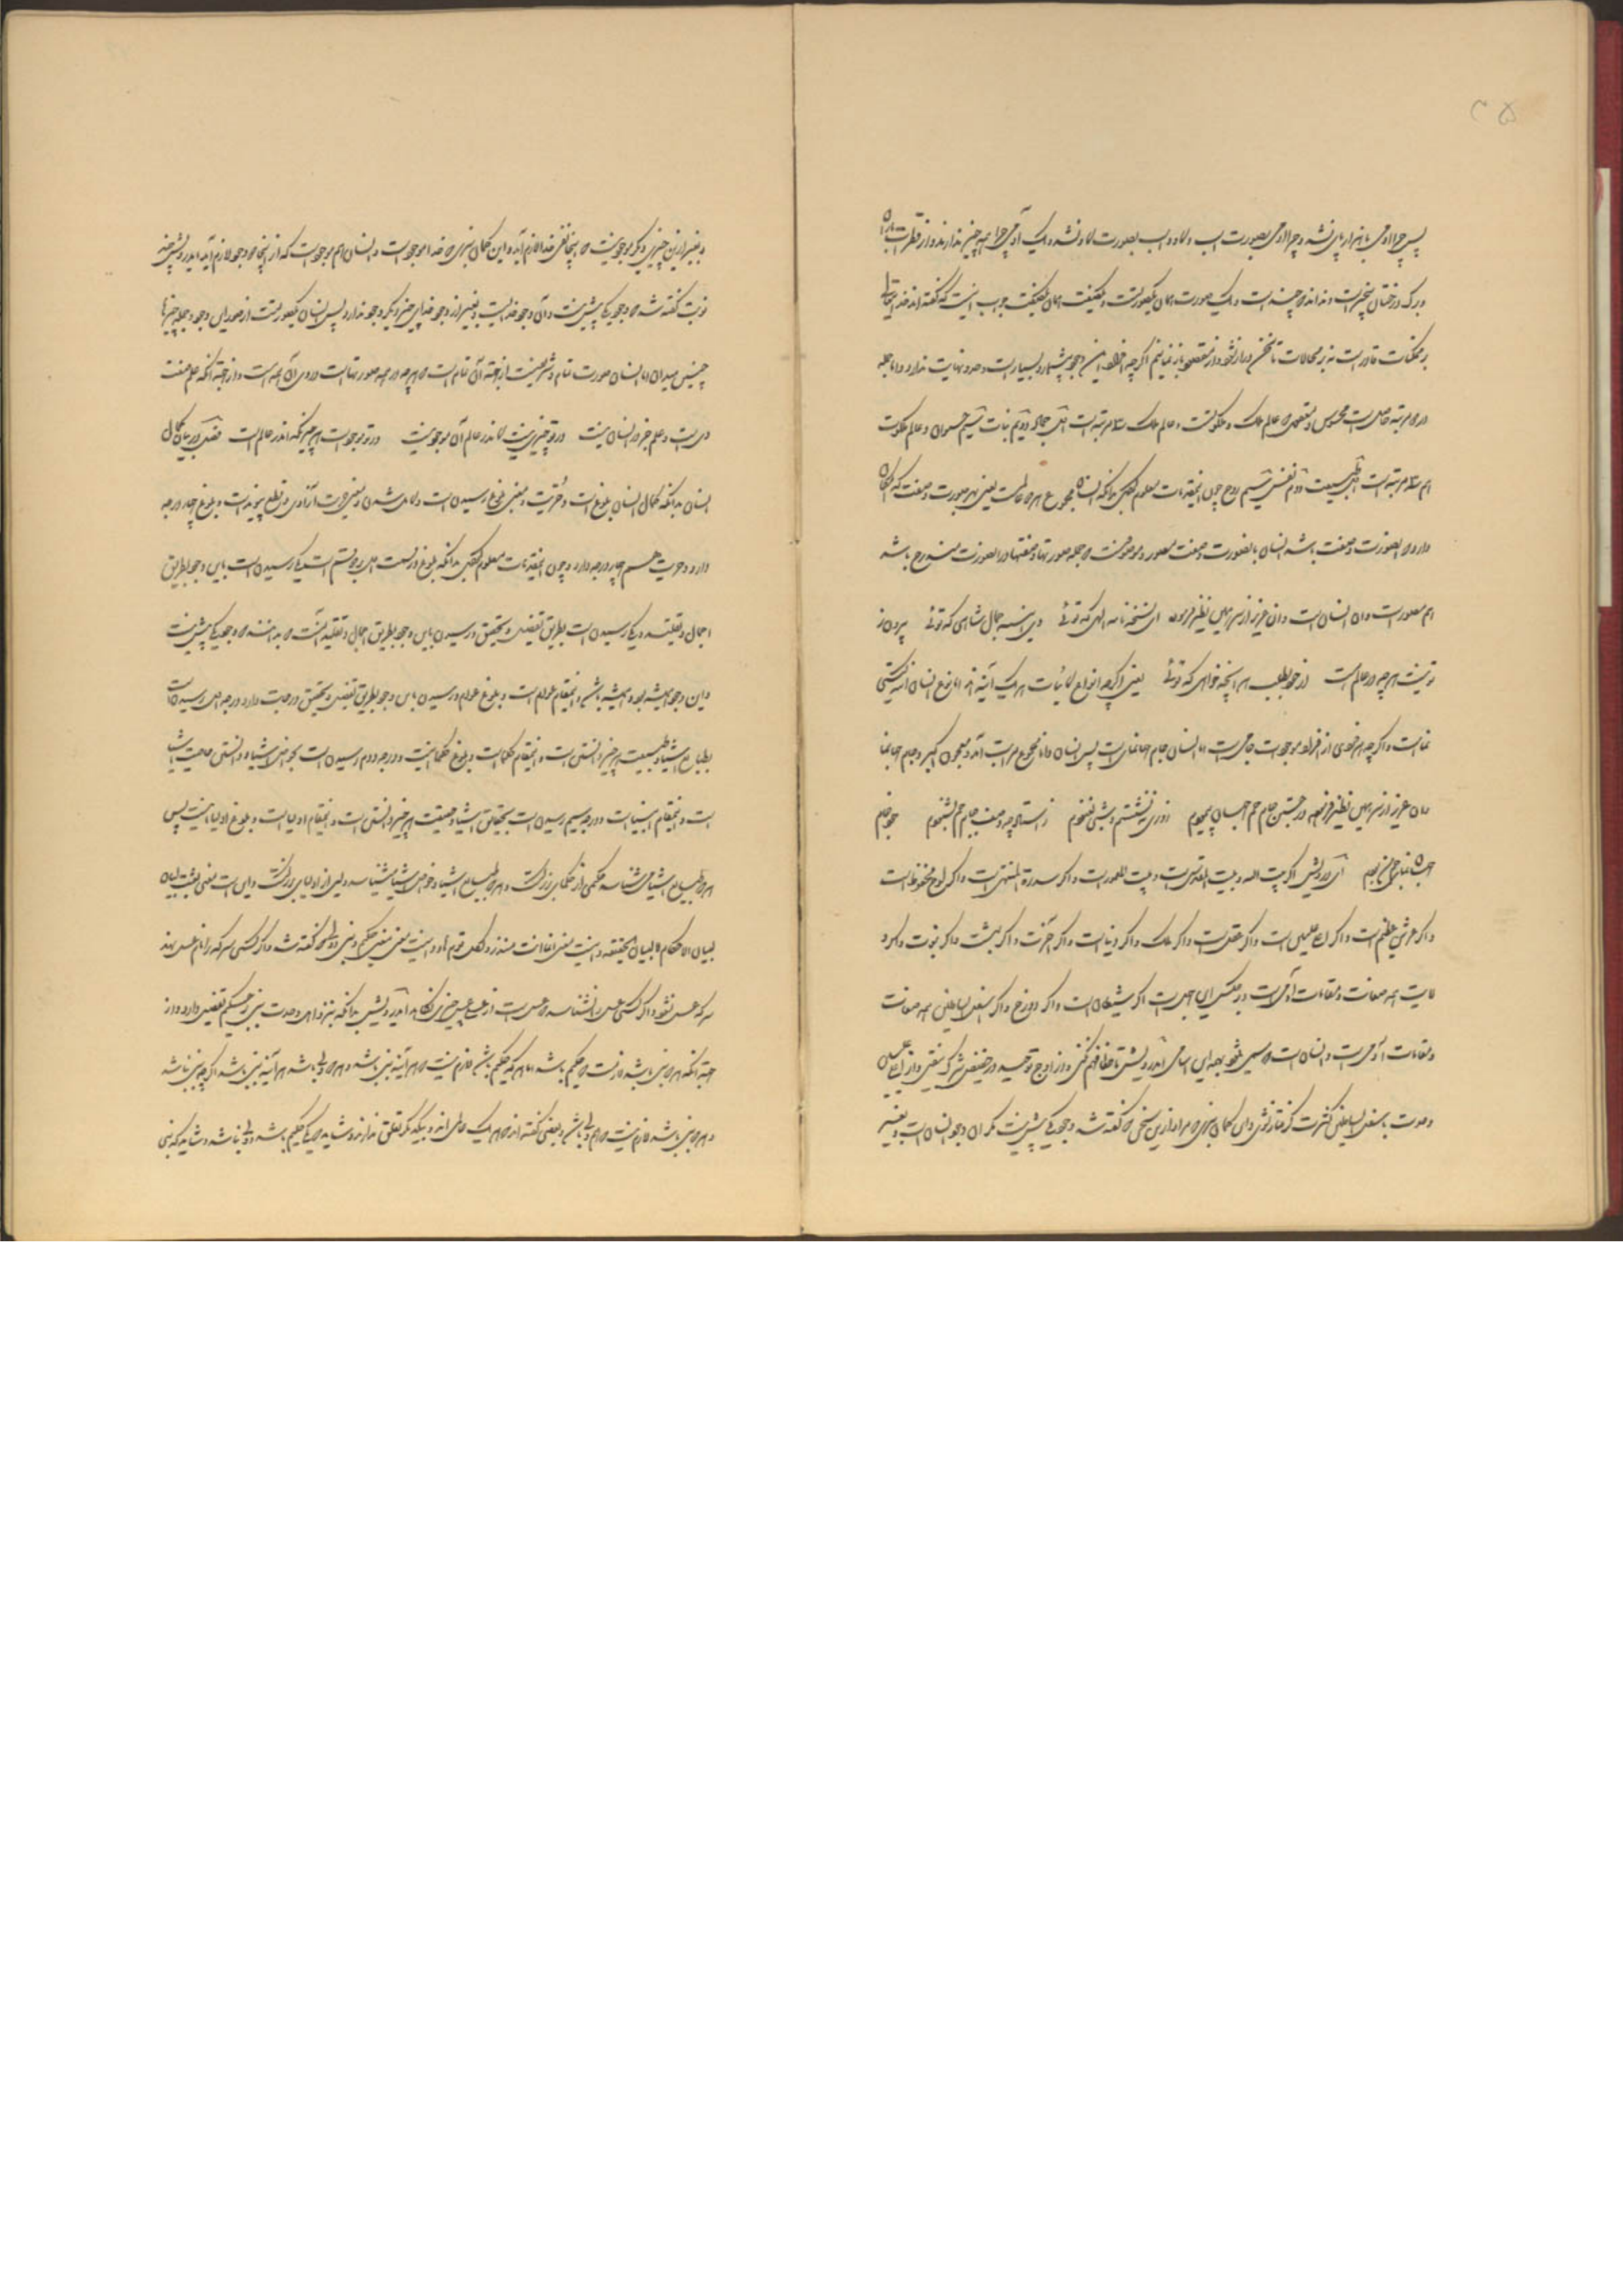 ۲۵
پس چرا آدمی با هزار پای نشد و چرا آدمی بصورت اسب و گاو و اسب بصورت گاو نشد و یک آدمی چرا همه چیز ندارند و از قطرات باران
و برگ درختان بیخبر است و نداند که چند است و یک صورت همان یکصورتست و یکصفت همان یکصفت جواب آنست که گفته اند خدایتعالی
بر ممکنات قادرست نه بر محالات تا سخن دراز نشود و از مقصود باز نمانیم اگرچه افراد این وجود بیشمار و بسیارست و حد و نهایت ندارد و اما جمله
در دو مرتبه حاصل است محسوس و معقول که عالم ملک و ملکوتست و عالم ملک سه مرتبه است اول جماد دویم نبات سیم حیوان و عالم ملکوت
هم سه مرتبه است اول طبیعت دوم نفس سیم روح چون این مقدمات معلوم کردی بدانکه انسان مجموع هر دو عالمست یعنی هر صورت و صفت که امکان
دارد که بصورت و صفت باشد انسان بآن صورت و صفت مصور و موصوفست و جمله صورتها و صفتها در این صورت مندرج باشد
هم مصورست و آن انسان است و آن عزیز از سر همین نظر فرموده ای نسخه نامه الهی که توئی وی آینه جمال شاهی که توئی بیرون ز
تو نیست هرچه در عالم است از خود بطلب هر آنچه خواهی که توئی یعنی اگرچه انواع کائنات هر یک آینه اند اما نوع انسان آینه گیتی
نماست و اگرچه هر فردی از افراد موجودات جامی است اما انسان جام جهان نمای است پس انسان دانا مجموع مراتب آمد و معجون اکبر و جام جهان نما
و آن عزیز از سر همین نظر فرموده در جستن جام جم جهان پیمودم روزی ننشستم و شبی نغنودم ز استاد چو وصف جام جم بشنودم خود جام
جهان نمای جم من بودم ای درویش اگر بیت الله و بیت المقدس است و بیت المعمورست و اگر سدرة المنتهی است و اگر لوح محفوظ است
و اگر عرش عظیم است و اگر اعلی علیین است و اگر عقل است و اگر ملک و اگر دنیاست و اگر آخرت و اگر بهشت و اگر نبوت و اگر و
لایت همه صفات و مقامات آدمیست و بر عکس این اجسامست اگر شیطان است و اگر دوزخ و اگر اسفل السافلین همه صفات
و مقامات آدمی است و انسان است که مسمی میشود بهمه این اسامی ای درویش تا خطا فهم نکنی و از اوج توحید در حضیض شرک نیفتی و از اعلی علیین
وحدت باسفل السافلین کثرت گرفتار نشوی و این گمان نبری که مراد از این سخن که گفته شد وجود یکی بیش نیست مگر آن وجود انسان است و بغیر
و بغیر ازین چیزی دیگر موجود نیست که اینجا نفی خدا لازم آید و این گمان نبری که خدا موجود است و انسان هم موجود است که از اینجا دو وجود لازم آید ای درویش چند
نوبت گفته شد که وجود یکی بیش نیست و آن وجود خدایست و بغیر از وجود خدای چیز دیگر وجود ندارد پس انسان یکصورتست از صور این وجود و جمله چیزها
چنین میدان اما انسان صورت تمام و شریفست از جهت آن تمام است که هرچه در همه صورتهاست در وی آن همه است و از جهت آنکه علم صفت
وی است و علم جز در انسان نیست در تو چیزی نیست کاندر عالم آن موجود نیست در تو موجود است هر چیزی که اندر عالم است فصل در بیان کمال
انسان بدانکه کمال انسان بلوغ است و حریت و معنی بلوغ رسیدن است و کامل شدن و معنی حریت آزادی و قطع پیوند است و بلوغ چهار درجه
دارد و حریت هم چهار درجه دارد و چون این مقدمات معلوم کردی بدانکه بلوغ در لغت اهل بر دو قسم است یکی رسیدن است باین وجود بطریق
اجمال و تقلید و یکی رسیدن است بطریق تفصیل و تحقیق و رسیدن باین وجود بطریق اجمال و تقلید آنست که بدانند که وجود یکی بیش نیست
و این وجود همیشه بود و همیشه باشد و این مقام عوام است و بلوغ عوام و رسیدن باین وجود بطریق تفصیل و تحقیق درجات دارد درجه اول رسیدن است
بطبایع اشیا و طبیعت هر چیز دانستن است و این مقام حکماست و بلوغ حکما اینست و درجه دوم رسیدن است بخواص اشیا و دانستن خاصیت اشیا
است و این مقام انبیا است و درجه سیم رسیدن است بحقایق اشیا و حقیقت هر چیز دانستن است و این مقام اولیا است و بلوغ اولیا اینست پس
هر که طبایع اشیا می شناسد حکیمی از حکمای بزرگست و هر که طبایع اشیا و خواص اشیا
بیان الاحکام و البیان الحقیقه و اینست معنی انما انت منذر و لکل قوم هاد و اینست معنی حکیم و نبی و ولی که گفته شد و اگر کسی سرکه را نام عسل نهد
سرکه عسل نشود و اگر کسی عسل را نشناسد که عسل است از عسلی عسل چیزی نکاهد ای درویش بدانکه نزد اهل وحدت نبی بر حکیم تفضیل دارد و از
جهت آنکه هر که نبی باشد لازمست که حکیم باشد اما هر که حکیم باشد لازم نیست که هر آینه نبی باشد و هر که ولی باشد هر آینه نبی باشد اگرچه نبی نباشد
و هر که نبی باشد لازم نیست که هم ولی باشد و بعضی گفته اند که هر یک عالمی اند و بیکدیگر تعلق ندارند و شاید که یکی حکیم باشد و ولی نباشد و شاید که نبی